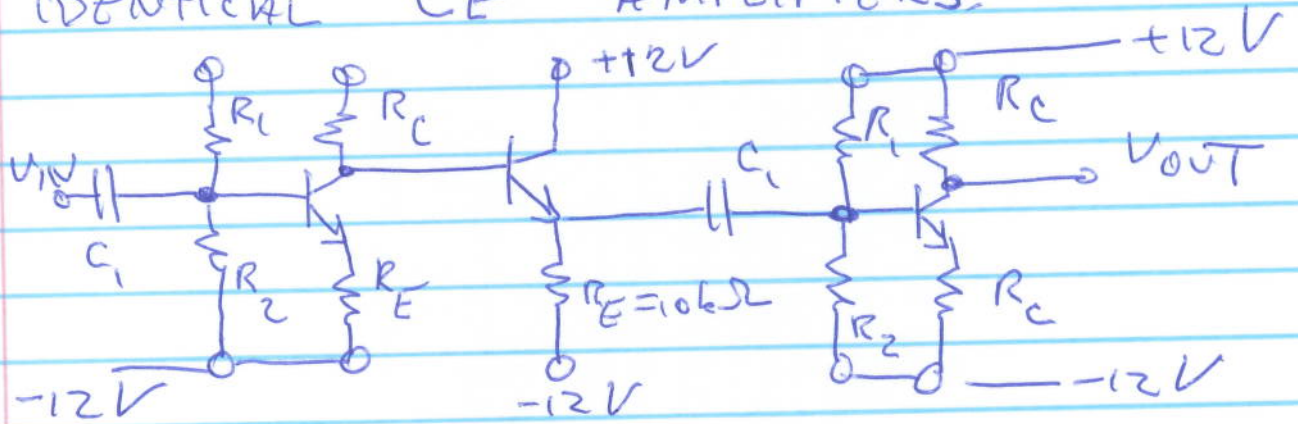 IDENTICAL CE AMPLIFIERS.
+12V
+12V
R1 RC R1 RC
VIN C1 VOUT
C1 R2 RE RE=10kΩ R2 RC
-12V -12V -12V